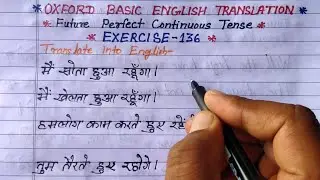 OXFORD BASIC ENGLISH TRANSLATION
* Future Perfect Continuous Tense *
* EXERCISE-136 *
Translate into English-
मैं सोता हुआ रहूँगा।
मैं खेलता हुआ रहूँगा।
हमलोग काम करते हुए रहेंगे
तुम तैरते हुए रहोगे।